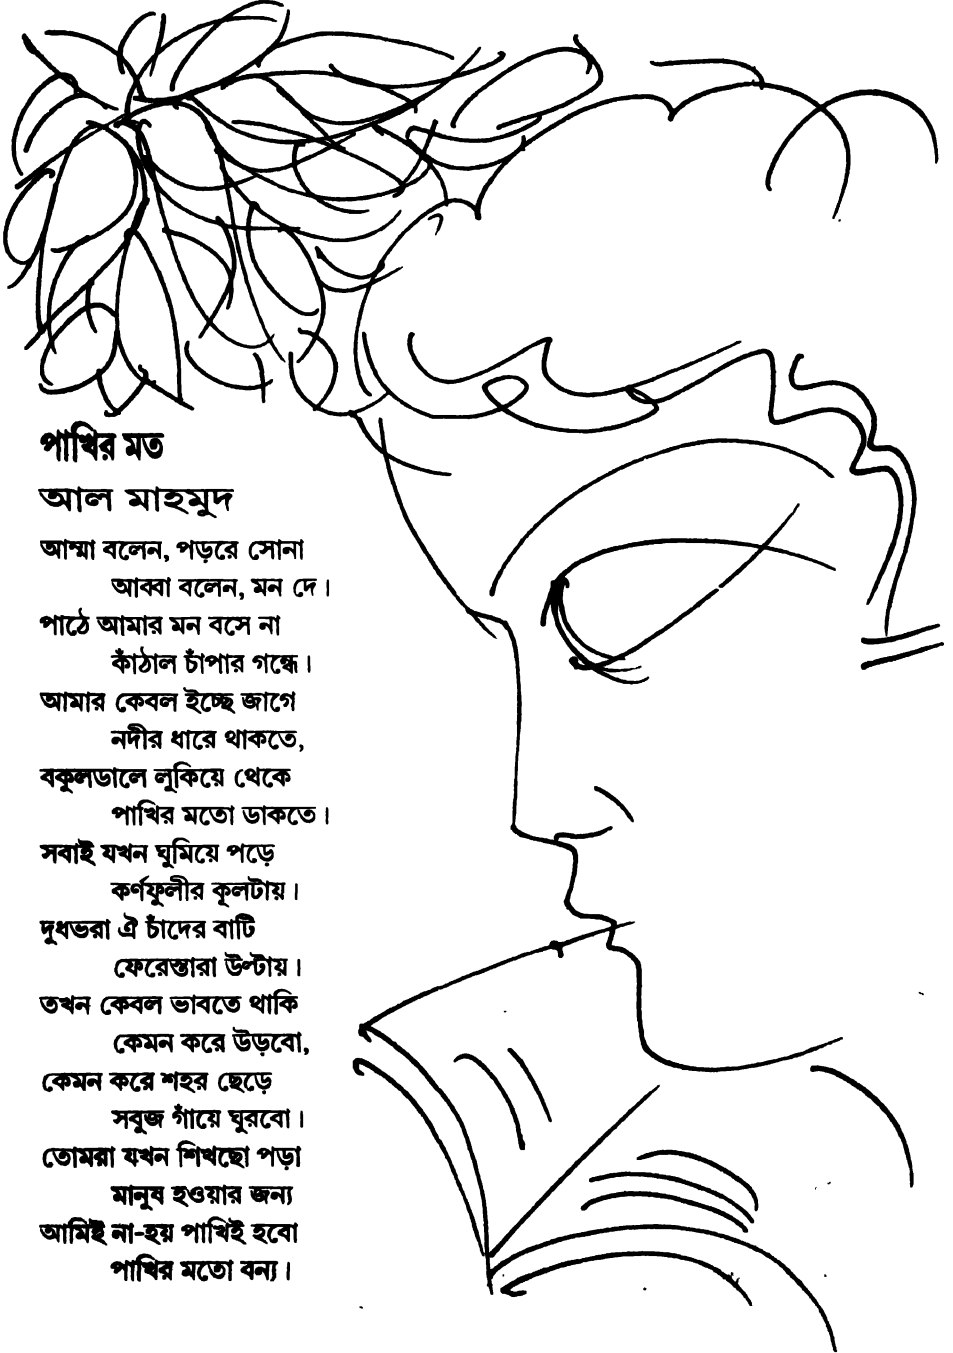 পাখির মত
আল মাহমুদ
আম্মা বলেন, পড়রে সোনা
আব্বা বলেন, মন দে।
পাঠে আমার মন বসে না
কাঁঠাল চাঁপার গন্ধে।
আমার কেবল ইচ্ছে জাগে
নদীর ধারে থাকতে,
বকুলডালে লুকিয়ে থেকে
পাখির মতো ডাকতে।
সবাই যখন ঘুমিয়ে পড়ে
কর্ণফুলীর কূলটায়।
দুধভরা ঐ চাঁদের বাটি
ফেরেস্তারা উল্টায়।
তখন কেবল ভাবতে থাকি
কেমন করে উড়বো,
কেমন করে শহর ছেড়ে
সবুজ গাঁয়ে ঘুরবো।
তোমরা যখন শিখছো পড়া
মানুষ হওয়ার জন্য
আমিই না-হয় পাখিই হবো
পাখির মতো বন্য।